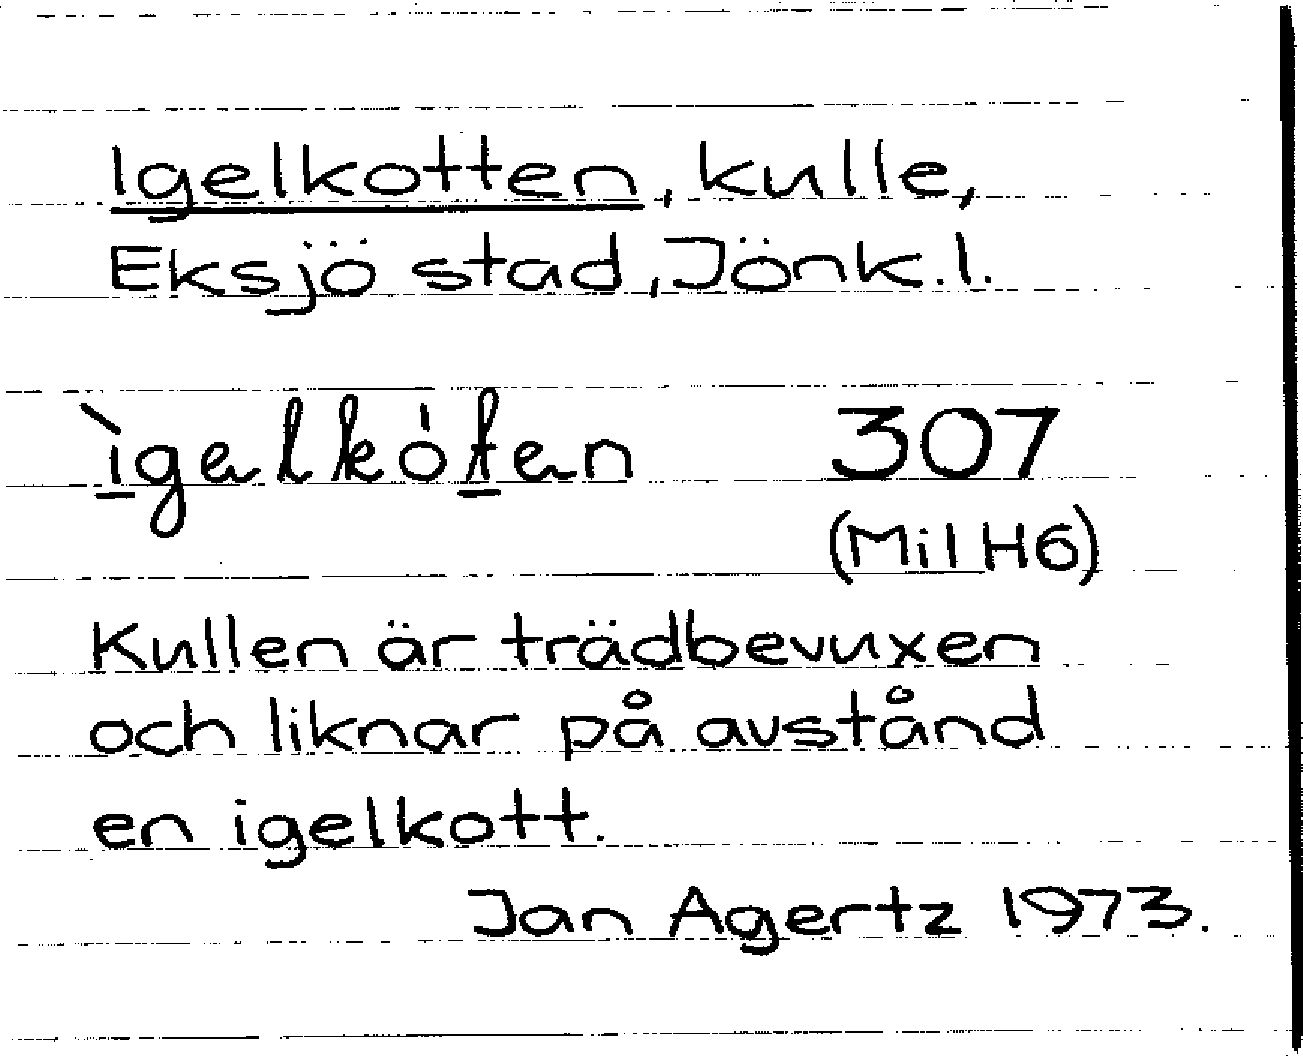 Igelkotten, kulle,
Eksjö stad, Jönk.l.
ìgelkóten 307
(Mil H6)
Kullen är trädbevuxen
och liknar på avstånd
en igelkott.
Jan Agertz 1973.